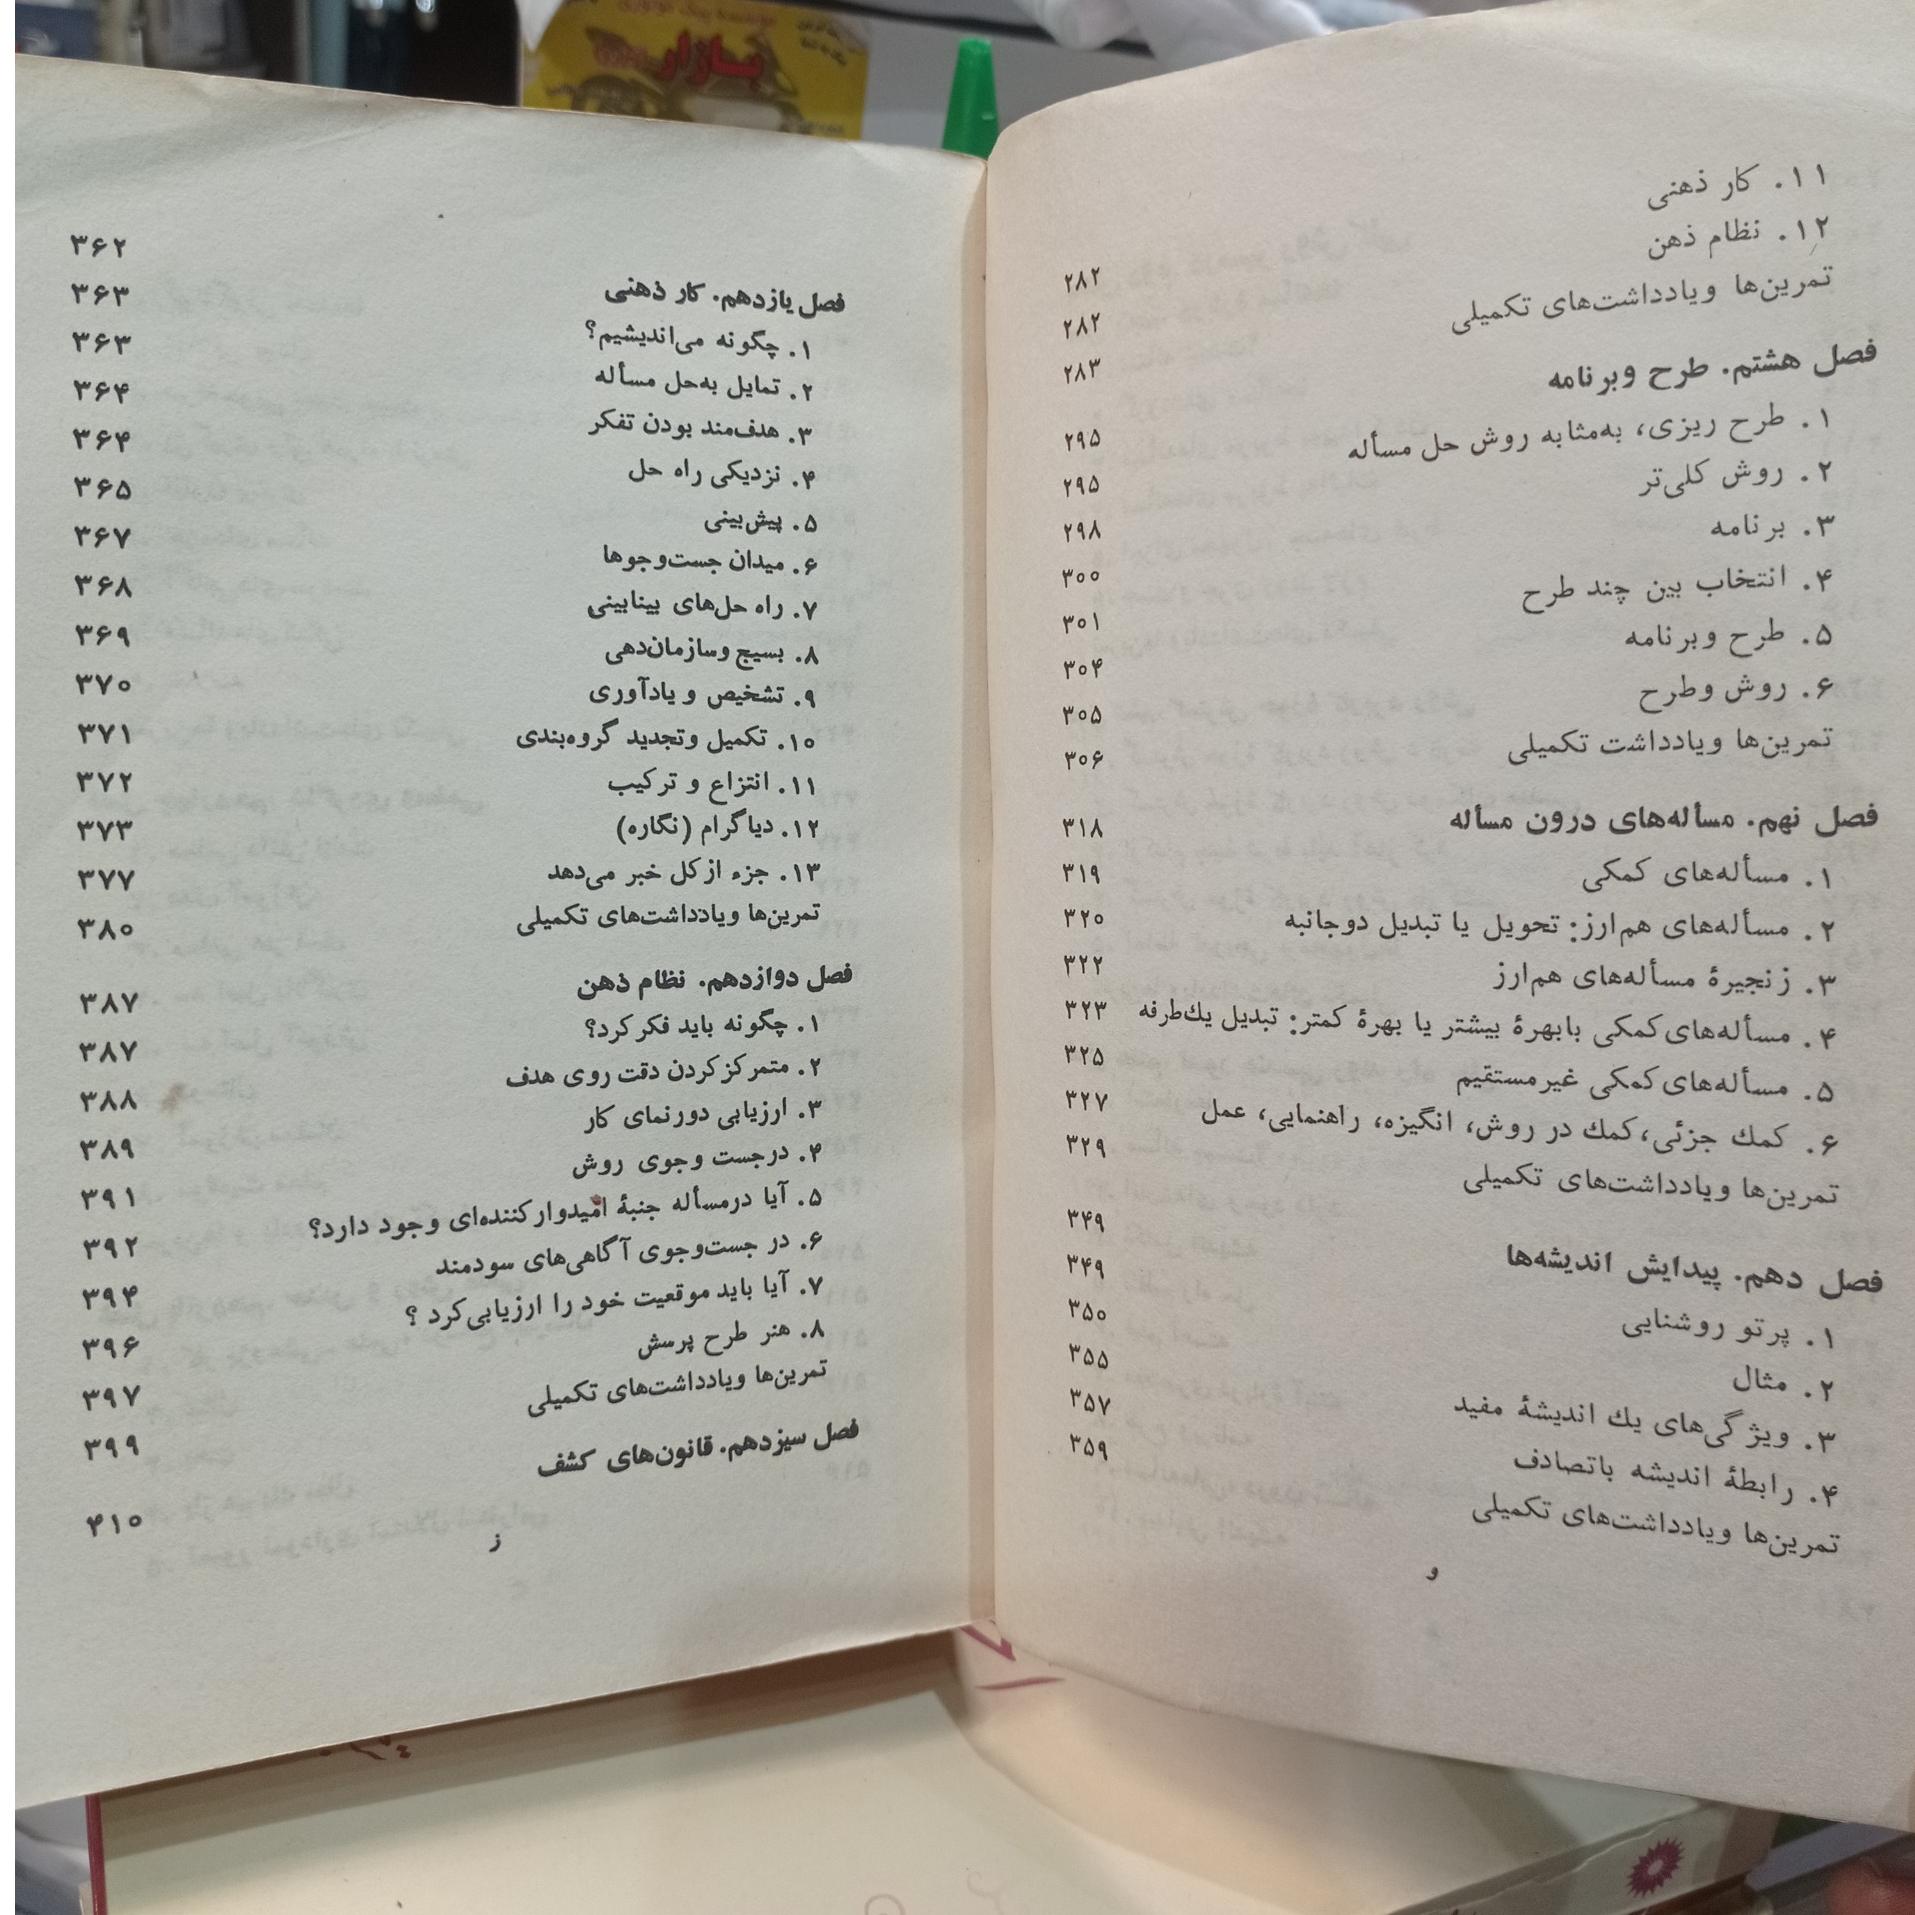 ۱۱. کار ذهنی ۲۸۲
۱۲. نظام ذهن ۲۸۲
تمرین‌ها ویادداشت‌های تکمیلی ۲۸۳
فصل هشتم. طرح وبرنامه ۲۹۵
۱. طرح ریزی، به‌مثابه روش حل مسأله ۲۹۵
۲. روش کلی‌تر ۲۹۸
۳. برنامه ۳۰۰
۴. انتخاب بین چند طرح ۳۰۱
۵. طرح وبرنامه ۳۰۴
۶. روش وطرح ۳۰۵
تمرین‌ها ویادداشت تکمیلی ۳۰۶
فصل نهم. مسأله‌های درون مسأله ۳۱۸
۱. مسأله‌های کمکی ۳۱۹
۲. مسأله‌های هم‌ارز: تحویل یا تبدیل دوجانبه ۳۲۰
۳. زنجیرۀ مسأله‌های هم‌ارز ۳۲۲
۴. مسأله‌های کمکی بابهرۀ بیشتر یا بهرۀ کمتر: تبدیل یك‌طرفه ۳۲۳
۵. مسأله‌های کمکی غیرمستقیم ۳۲۵
۶. کمك جزئی، کمك در روش، انگیزه، راهنمایی، عمل ۳۲۷
تمرین‌ها ویادداشت‌های تکمیلی ۳۲۹
فصل دهم. پیدایش اندیشه‌ها ۳۴۹
۱. پرتو روشنایی ۳۴۹
۲. مثال ۳۵۰
۳. ویژگی‌های یك اندیشۀ مفید ۳۵۵
۴. رابطۀ اندیشه باتصادف ۳۵۷
تمرین‌ها ویادداشت‌های تکمیلی ۳۵۹
و
فصل یازدهم. کار ذهنی ۳۶۲
۱. چگونه می‌اندیشیم؟ ۳۶۳
۲. تمایل به‌حل مسأله ۳۶۳
۳. هدف‌مند بودن تفکر ۳۶۴
۴. نزدیکی راه حل ۳۶۴
۵. پیش‌بینی ۳۶۵
۶. میدان جست‌وجوها ۳۶۷
۷. راه حل‌های بینابینی ۳۶۸
۸. بسیج وسازمان‌دهی ۳۶۹
۹. تشخیص و یادآوری ۳۷۰
۱۰. تکمیل وتجدید گروه‌بندی ۳۷۱
۱۱. انتزاع و ترکیب ۳۷۲
۱۲. دیاگرام (نگاره) ۳۷۳
۱۳. جزء ازکل خبر می‌دهد ۳۷۷
تمرین‌ها ویادداشت‌های تکمیلی ۳۸۰
فصل دوازدهم. نظام ذهن ۳۸۷
۱. چگونه باید فکرکرد؟ ۳۸۷
۲. متمرکزکردن دقت روی هدف ۳۸۸
۳. ارزیابی دورنمای کار ۳۸۹
۴. درجست وجوی روش ۳۹۱
۵. آیا درمسأله جنبۀ امیدوارکننده‌ای وجود دارد؟ ۳۹۲
۶. در جست‌وجوی آگاهی‌های سودمند ۳۹۴
۷. آیا باید موقعیت خود را ارزیابی‌کرد ؟ ۳۹۶
۸. هنر طرح پرسش ۳۹۷
تمرین‌ها ویادداشت‌های تکمیلی ۳۹۹
فصل سیزدهم. قانون‌های کشف ۴۱۰
ز
بازار